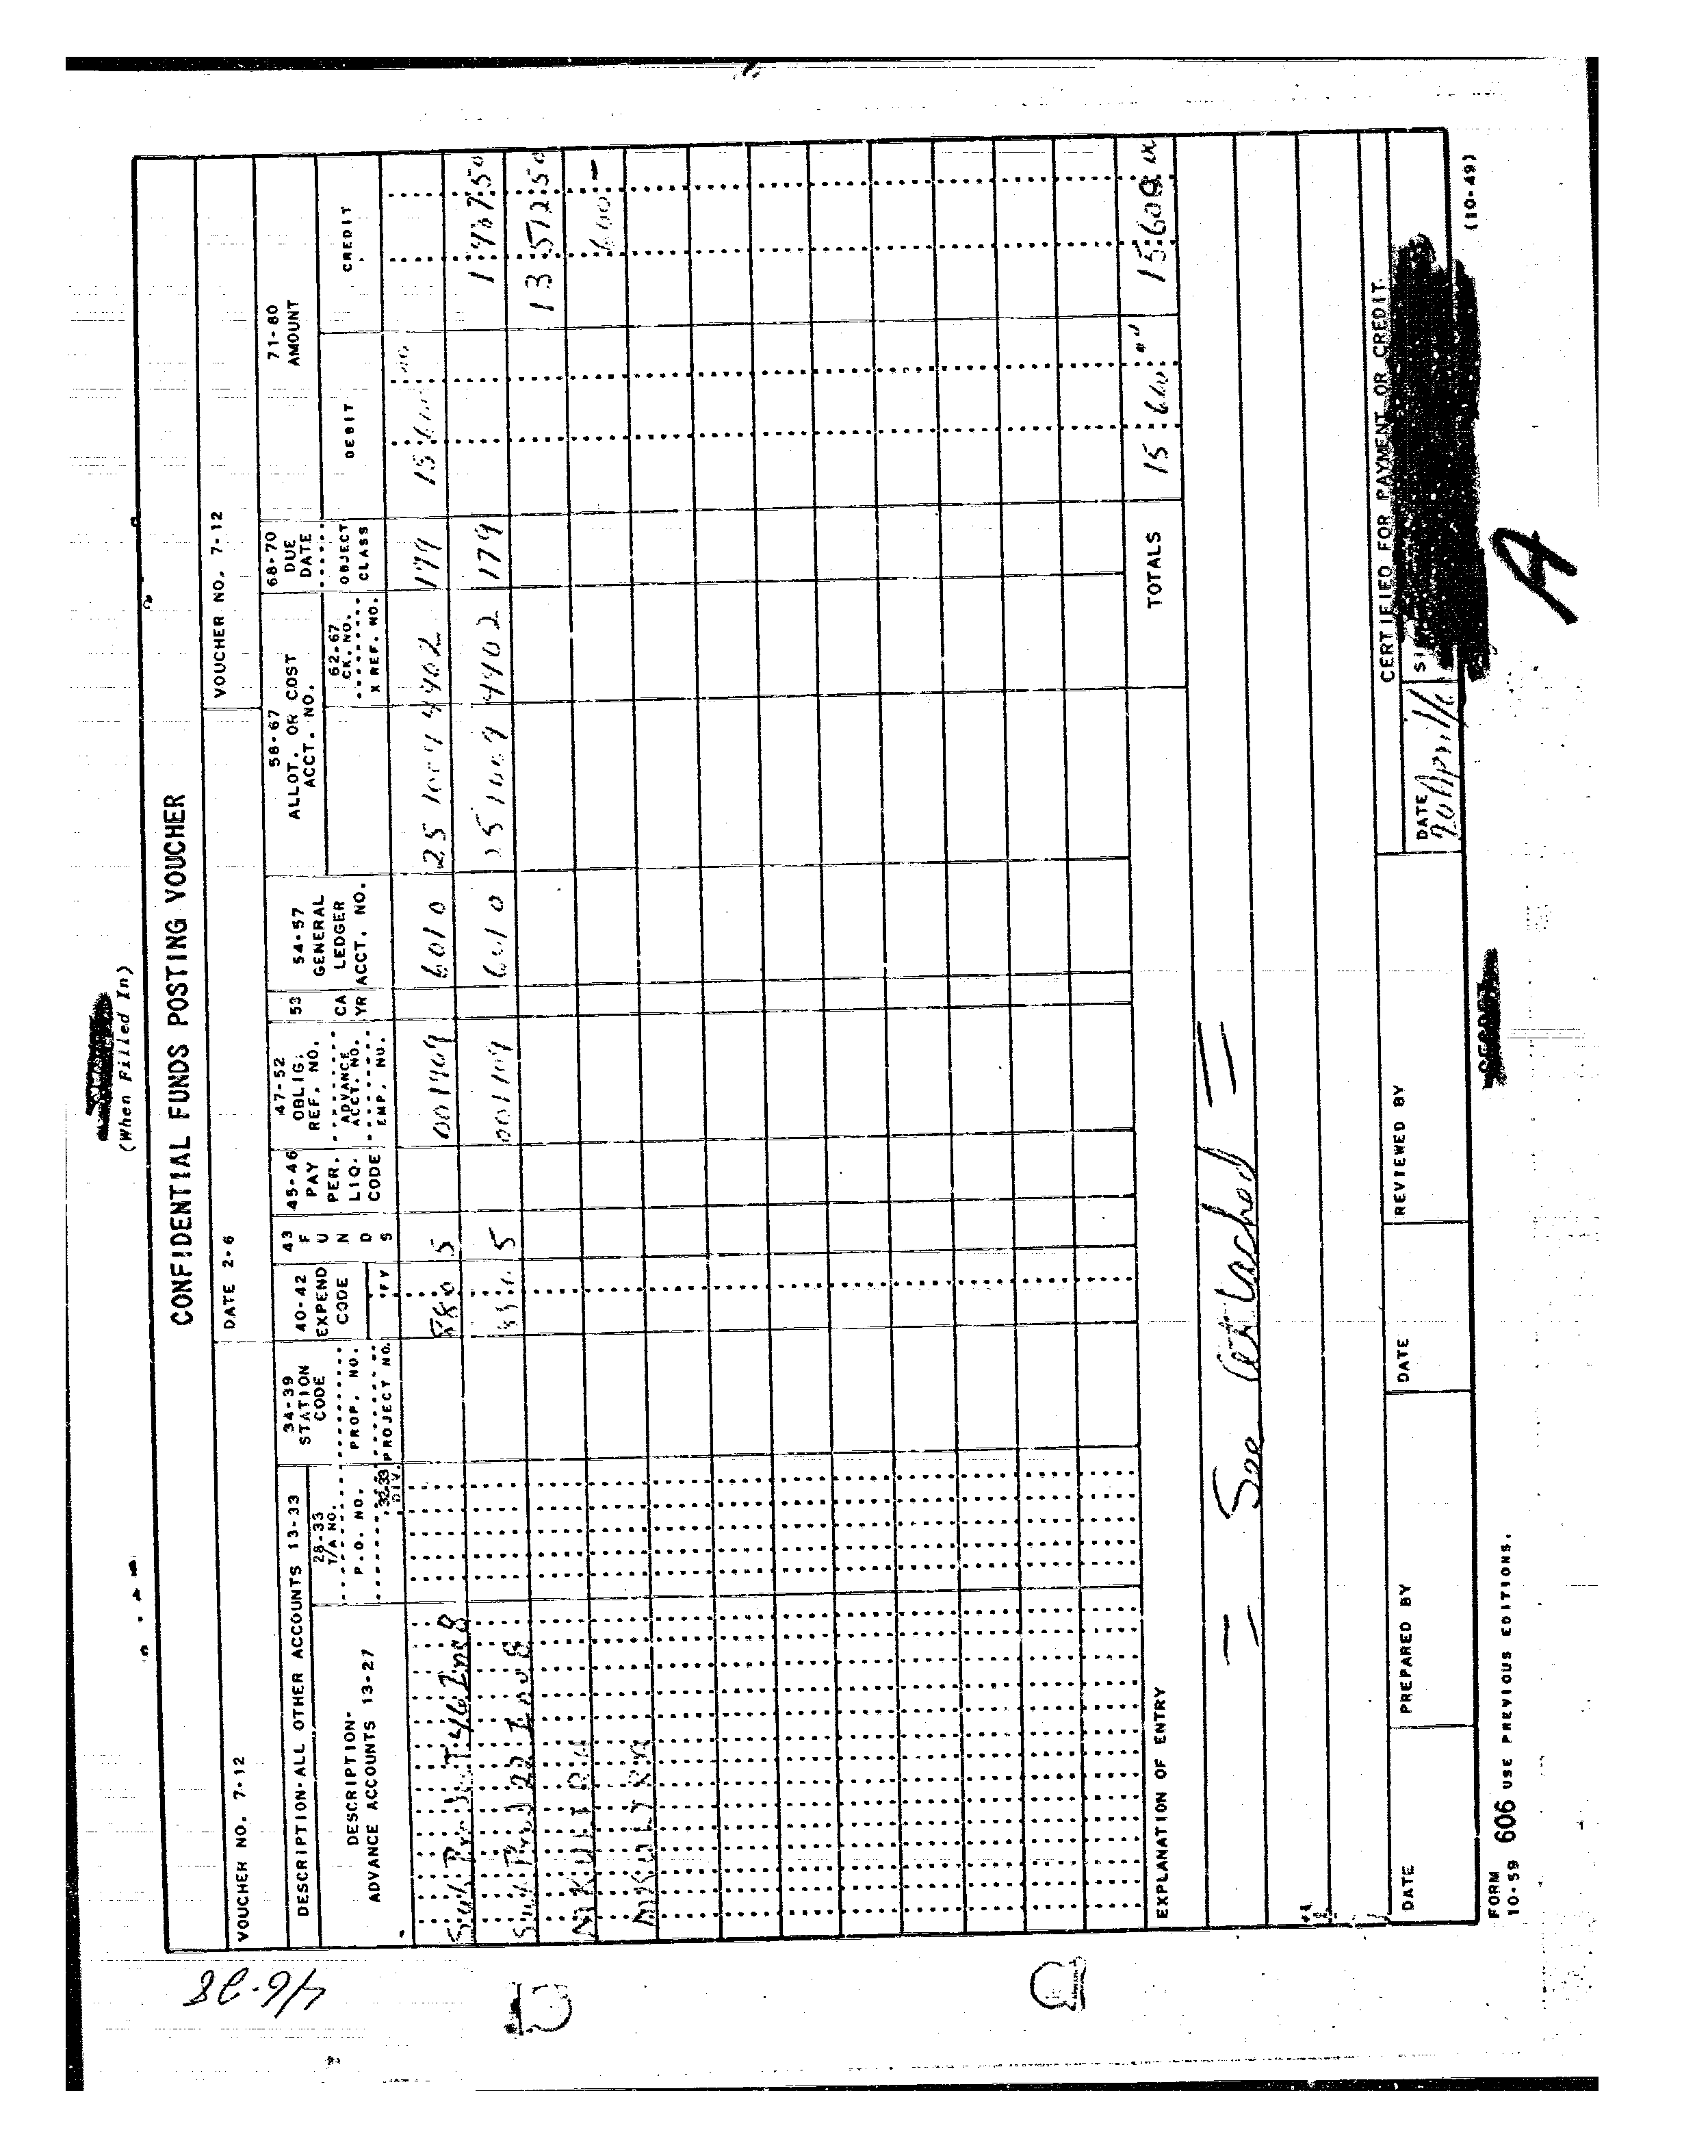 (When Filled In)
CONFIDENTIAL FUNDS POSTING VOUCHER
46-28
VOUCHER NO. 7-12
DATE 2-6
VOUCHER NO. 7-12
DESCRIPTION-ALL OTHER ACCOUNTS 13-33
DESCRIPTION-
ADVANCE ACCOUNTS 13-27
28-33
T/A NO.
P.O. NO.
32-33
DIV.
34-39
STATION
CODE
PROP. NO.
PROJECT NO.
40-42
EXPEND
CODE
FY
43
F
U
N
D
S
45-46
PAY
PER.
LIQ.
CODE
47-52
OBLIG.
REF. NO.
ADVANCE
ACCT. NO.
EMP. NO.
53
CA
YR
54-57
GENERAL
LEDGER
ACCT. NO.
58-67
ALLOT. OR COST
ACCT. NO.
62-67
CK. NO.
X REF. NO.
68-70
DUE
DATE
OBJECT
CLASS
71-80
AMOUNT
DEBIT
CREDIT
880 5 6010 4402 179
5 6010 4402 179 50
13 572 50
MKULTRA
MKULTRA
600 -
TOTALS 15 600 15 600
EXPLANATION OF ENTRY
= See Attached =
CERTIFIED FOR PAYMENT OR CREDIT
DATE
PREPARED BY
DATE
REVIEWED BY
DATE
20 April
FORM
10-59 606 USE PREVIOUS EDITIONS.
(10-49)
A